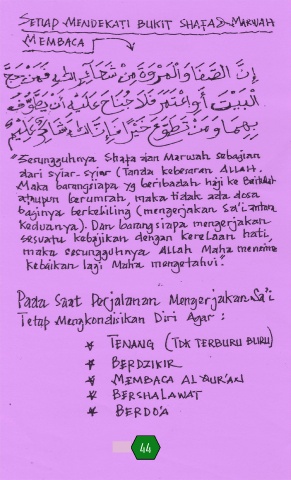 SETIAP MENDEKATI BUKIT SHAFA & MARWAH
MEMBACA
إِنَّ الصَّفَا وَالْمَرْوَةَ مِنْ شَعَائِرِ اللهِ فَمَنْ حَجَّ
الْبَيْتَ أَوِ اعْتَمَرَ فَلَا جُنَاحَ عَلَيْهِ أَنْ يَطَّوَّفَ
بِهِمَا وَمَنْ تَطَوَّعَ خَيْرًا فَإِنَّ اللهَ شَاكِرٌ عَلِيمٌ
"Sesungguhnya Shafa dan Marwah sebagian
dari syiar-syiar (Tanda kebesaran Allah.
Maka barangsiapa yg beribadah haji ke Baitullah
ataupun berumrah, maka tidak ada dosa
baginya berkeliling (mengerjakan Sa'i antara
Keduanya). Dan barangsiapa mengerjakan
sesuatu kebajikan dengan kerelaan hati,
maka sesungguhnya Allah Maha menerima
kebaikan lagi Maha mengetahui".
Pada Saat Perjalanan Mengerjakan Sa'i
Tetap Mengkondisikan Diri Agar :
* TENANG (TDK TERBURU BURU)
* BERDZIKIR
* MEMBACA AL QUR'AN
* BERSHALAWAT
* BERDO'A
44